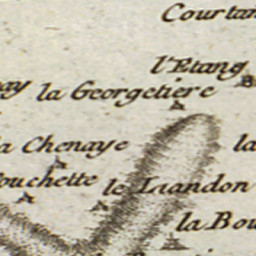 Courtan
l'Etang
ay la Georgetiere
a Chenaye la
ouchette le Liandon
la Bou